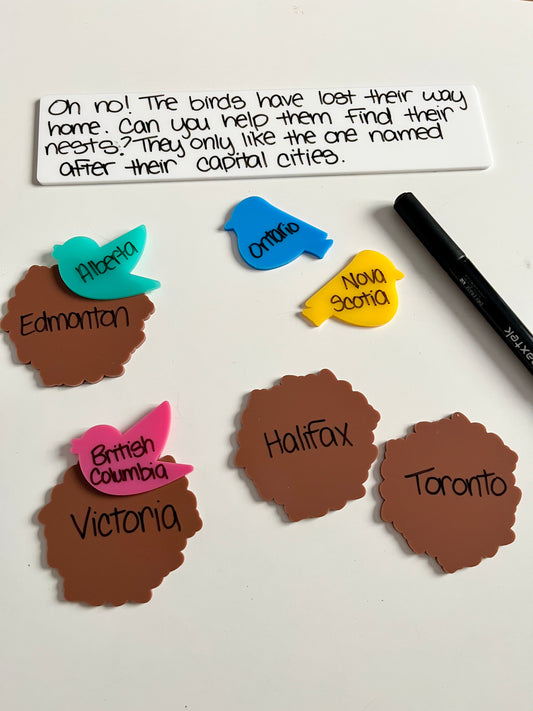 Oh no! The birds have lost their way
home. Can you help them find their
nests? They only like the one named
after their capital cities.
Alberta
Ontario
Nova
Scotia
Edmonton
British
Columbia
Halifax
Toronto
Victoria